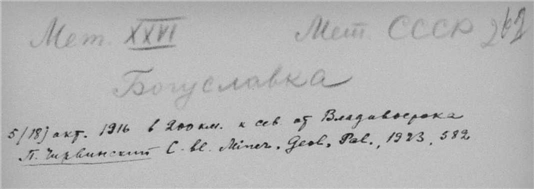 Мет. XXVI Мет СССР 262
Богуславка
5/18) окт. 1916 в 200 км. к сев. от Владивостока
П. Чирвинский C.-bl. Miner., Geol., Pal., 1923, 582